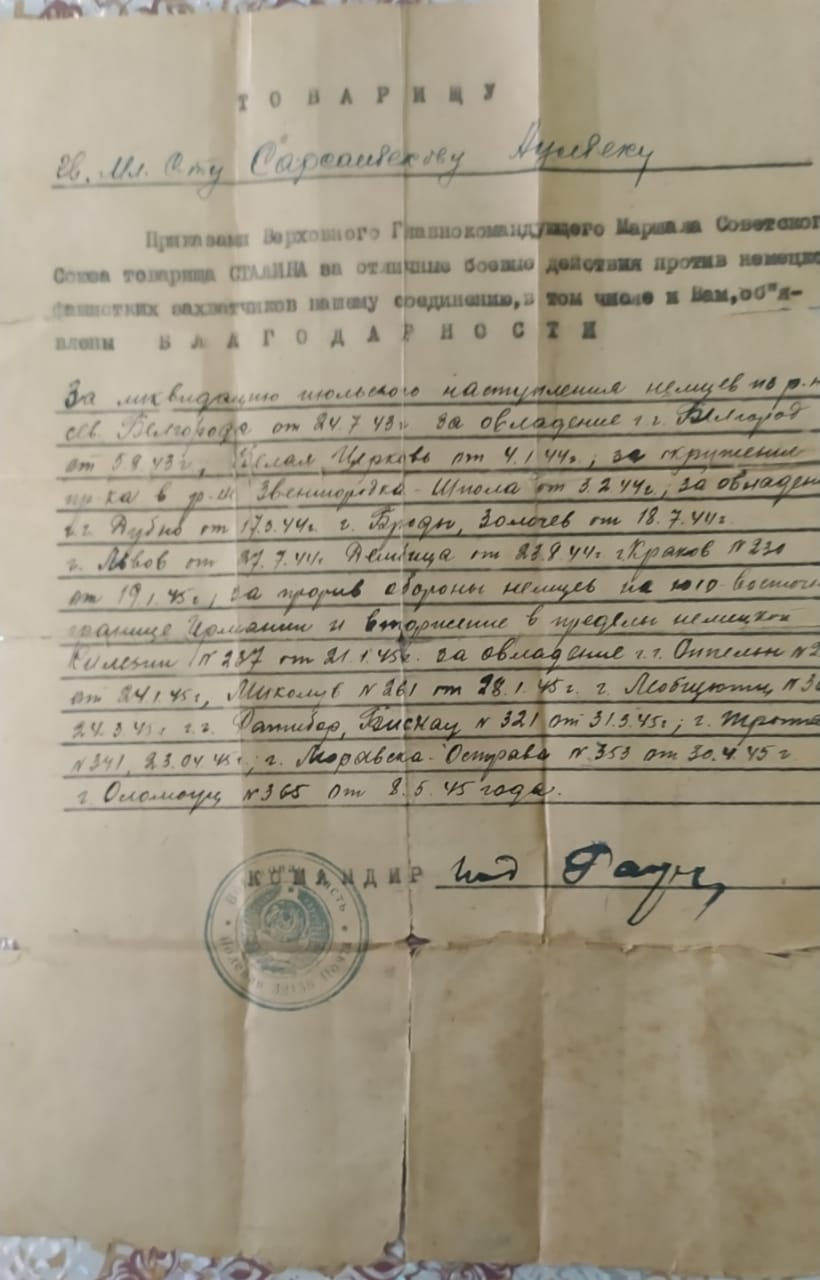 Т О В А Р И Щ У
гв. Мл. С-ту Сарсанбекову
Приказами Верховного Главнокомандующего Маршала Советског
Союза товарища СТАЛИНА за отличные боевые действия против немецко
фашистких захватчиков нашему соединению, в том числе и Вам, об"я-
влены Б Л А Г О Д А Р Н О С Т И
За ликвидацию июльского наступления немцев из р-н
сев. Белгорода от 24.7 43г за овладение г.г. Белгород
от 5 8.43г, Белая Церковь от 4.1.44г.; за окружение
пр-ка в р-не Звенигородка - Шпола от 3.2 44г.; за овладен
г.г. Дубно от 17.3.44г. г. Броды, Золочев от 18.7.44г.
г. Львов от 27.7.44г. Дембица от 23.8 44г. г. Краков N 230
от 19 1.45г.; за прорыв обороны немцев на юго-восточн
границе Германии и вторжение в пределы немецкой
Силезии N 237 от 21.1.45г. за овладение г.г. Оппельн N 2
от 24.1.45г, Миколув N 261 от 28.1.45г. г. Леобшютц N 3
24.3 45г г.г. Ратибор, Бискау N 321 от 31.3.45г.; г. Троппа
N 341, 23.04 45г.; г. Моравска-Острава N 353 от 30.4.45 г
г Оломоуц N 365 от 8.5.45 года.
КОМАНДИР
Полевая Почта